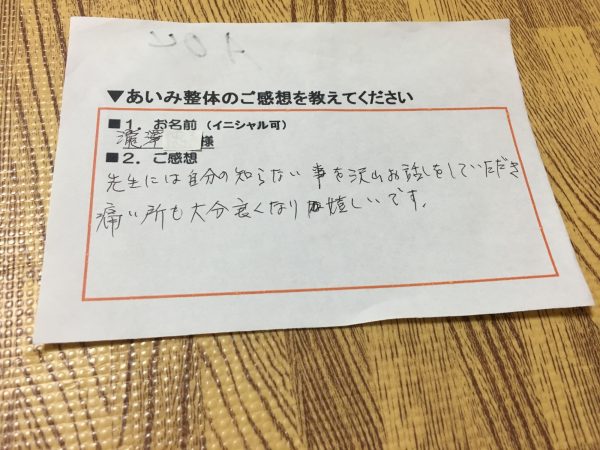 ▼あいみ整体のご感想を教えてください
■1．お名前（イニシャル可）
瀧澤 様
■2．ご感想
先生には自分の知らない事を沢山お話しをしていただき
痛い所も大分良くなり嬉しいです。